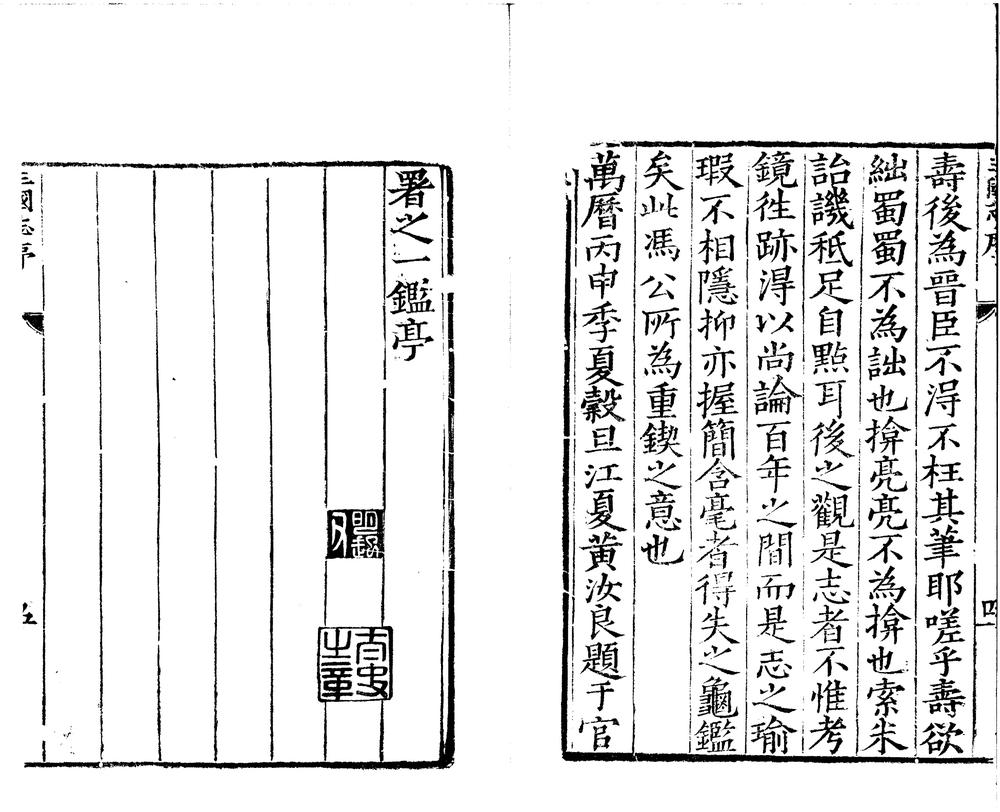 壽後為晉臣不得不枉其筆耶嗟乎壽欲
絀蜀蜀不為詘也揜亮亮不為揜也索米
詒譏秖足自點耳後之觀是志者不惟考
鏡徃跡淂以尚論百年之間而是志之瑜
瑕不相隱抑亦握簡含毫者得失之龜鑑
矣此馮公所為重鍥之意也
萬曆丙申季夏穀旦江夏黃汝良題于官
署之一鑑亭
太史之章
三國志序
五
四